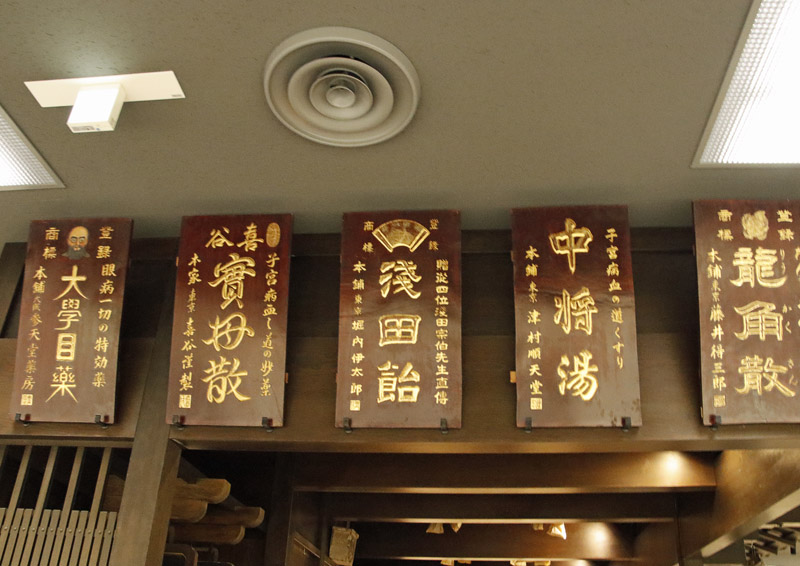 登録
商標
眼病一切の特効薬
大學目薬
本舗 大阪 参天堂薬房
子宮病血し道の妙薬
喜谷
實母散
本家 東京 喜谷謹製
登録
商標
贈従四位浅田宗伯先生直傳
淺田飴
本舗 東京 堀内伊太郎
子宮病血の道くすり
中将湯
本舗 東京 津村順天堂
登録
商標
龍角散
りうかくさん
本舗 東京 藤井得三郎